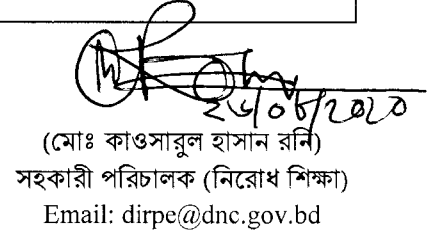 ২৬/০৮/2020
(মোঃ কাওসারুল হাসান রনি)
সহকারী পরিচালক (নিরোধ শিক্ষা)
Email: dirpe@dnc.gov.bd